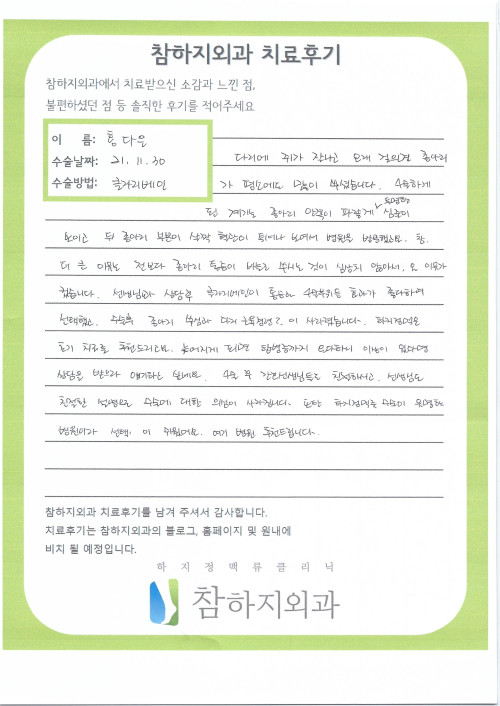 참하지외과 치료후기
참하지외과에서 치료받으신 소감과 느낀 점,
불편하셨던 점 등 솔직한 후기를 적어주세요
이 름: 홍다은
수술날짜: 21. 11. 30
수술방법: 클라리베인
다리에 쥐가 잘나고 오래 걸으면 종아리
가 평소에도 많이 쑤셨습니다. 수술하게
된 계기는 종아리 안쪽이 파랗게 실핏줄이
보이고 뒤 종아리 부분이 살짝 혈관이 튀어나 보여서 병원을 방문했어요.
더 큰 이유는 전보다 종아리 통증이 쑤시는 것이 심상치 않아서, 온 이유가
컸습니다. 선생님과 상담후 클라리베인이 통증과 효과가 좋다하여
선택했고, 수술후 종아리 쑤심과 다리 이 사라졌습니다. 하지정맥은
초기 치료를 추천드리고요. 늦어지게 되면 합병증까지 온다하니 이상이 있다면
상담을 받으라 얘기하고 싶네요. 수술 후 간호선생님들도 친절하시고, 선생님도
친절한 설명으로 수술에 대한 의심이 사라집니다. 하지정맥류 수술이 유명한
병원이라 선택이 쉬웠어요. 여기 병원 추천드립니다.
참하지외과 치료후기를 남겨 주셔서 감사합니다.
치료후기는 참하지외과의 블로그, 홈페이지 및 원내에
비치 될 예정입니다.
하지정맥류클리닉
참하지외과